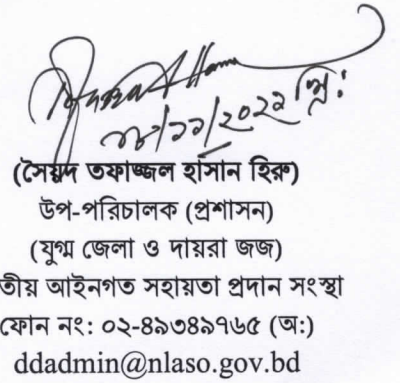 ০৮/১১/২০২২ খ্রি:
(সৈয়দ তফাজ্জল হাসান হিরু)
উপ-পরিচালক (প্রশাসন)
(যুগ্ম জেলা ও দায়রা জজ)
তীয় আইনগত সহায়তা প্রদান সংস্থা
ফোন নং: ০২-৪৯৩৪৯৭৬৫ (অ:)
ddadmin@nlaso.gov.bd